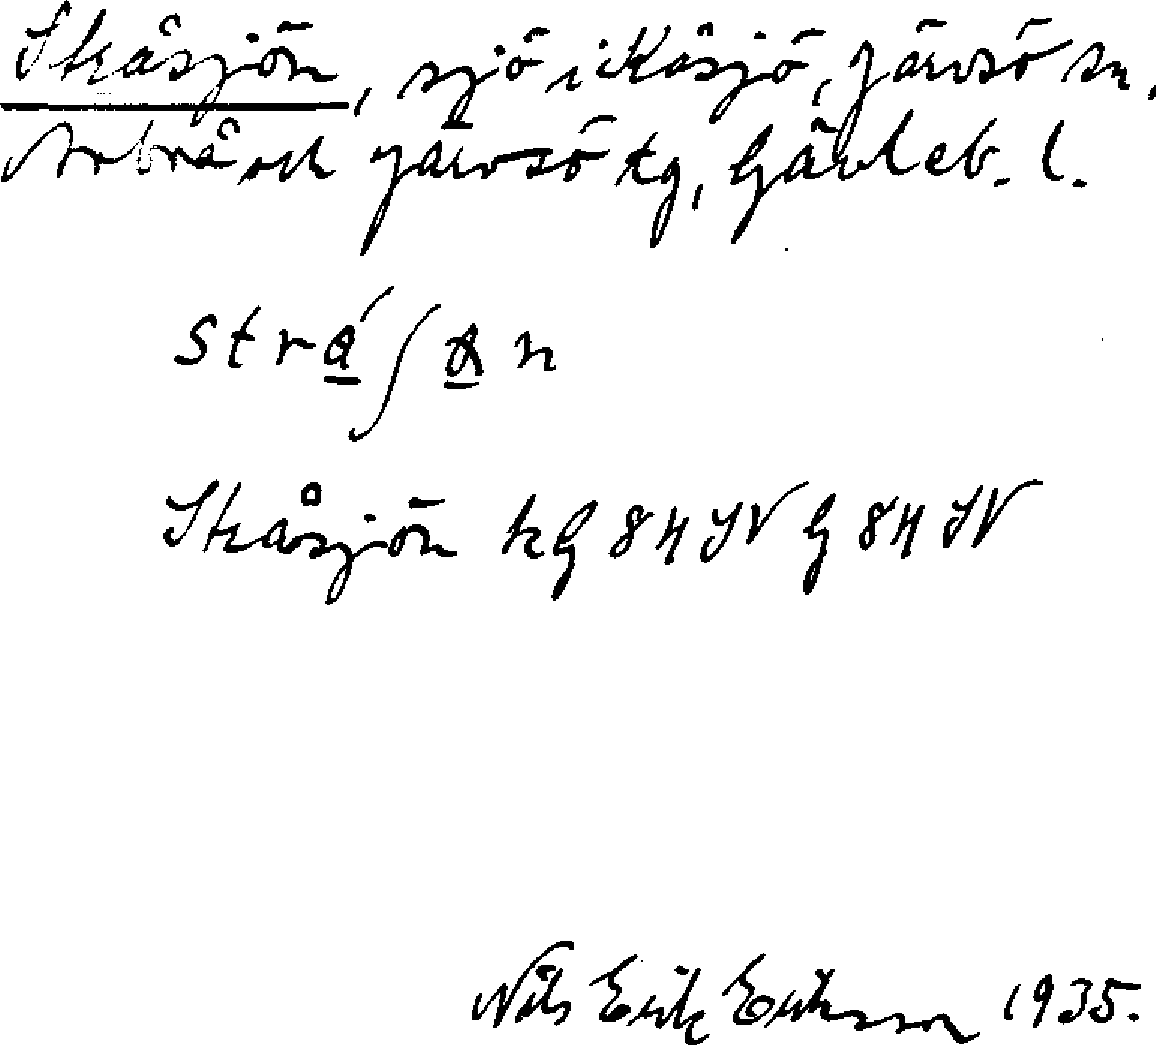 Stråsjön, sjö i Kåsjö, Järvsö sn,
Arbrå och Järvsö tg, Gävleb. l.
strá∫n
Stråsjön kG 84 SV G 84 SV
Nils Erik Eriksson 1935.